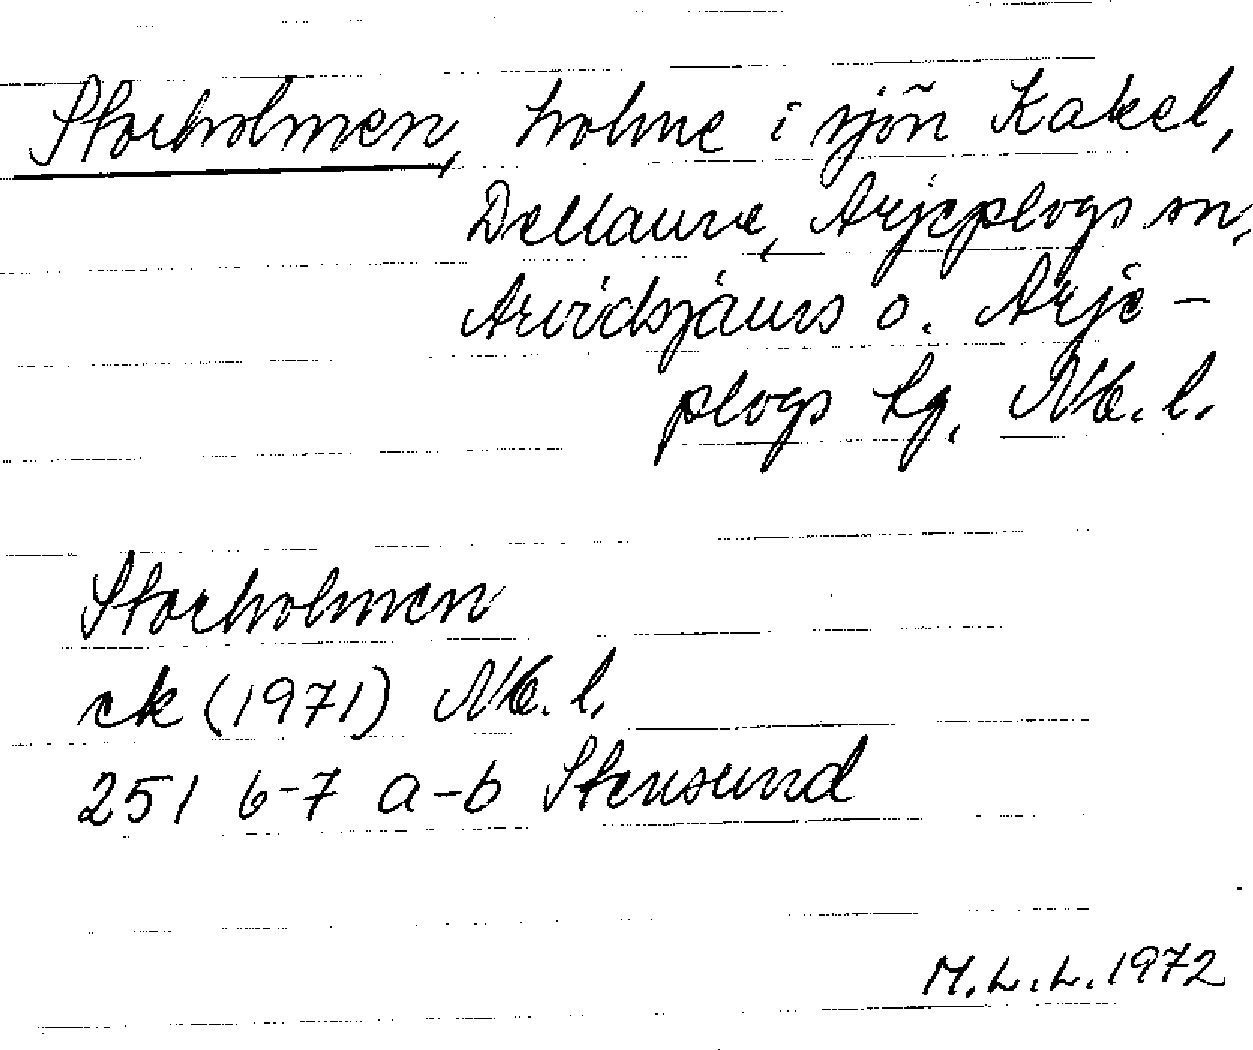 Storholmen, holme i sjön Kakel,
Dellaure, Arjeplogs sn,
Arvidsjaurs o. Arje-
plogs tg, Nb. l.
Storholmen
ek (1971) Nb. l.
25 I 6-7 a-b Stensund
M.L.L. 1972